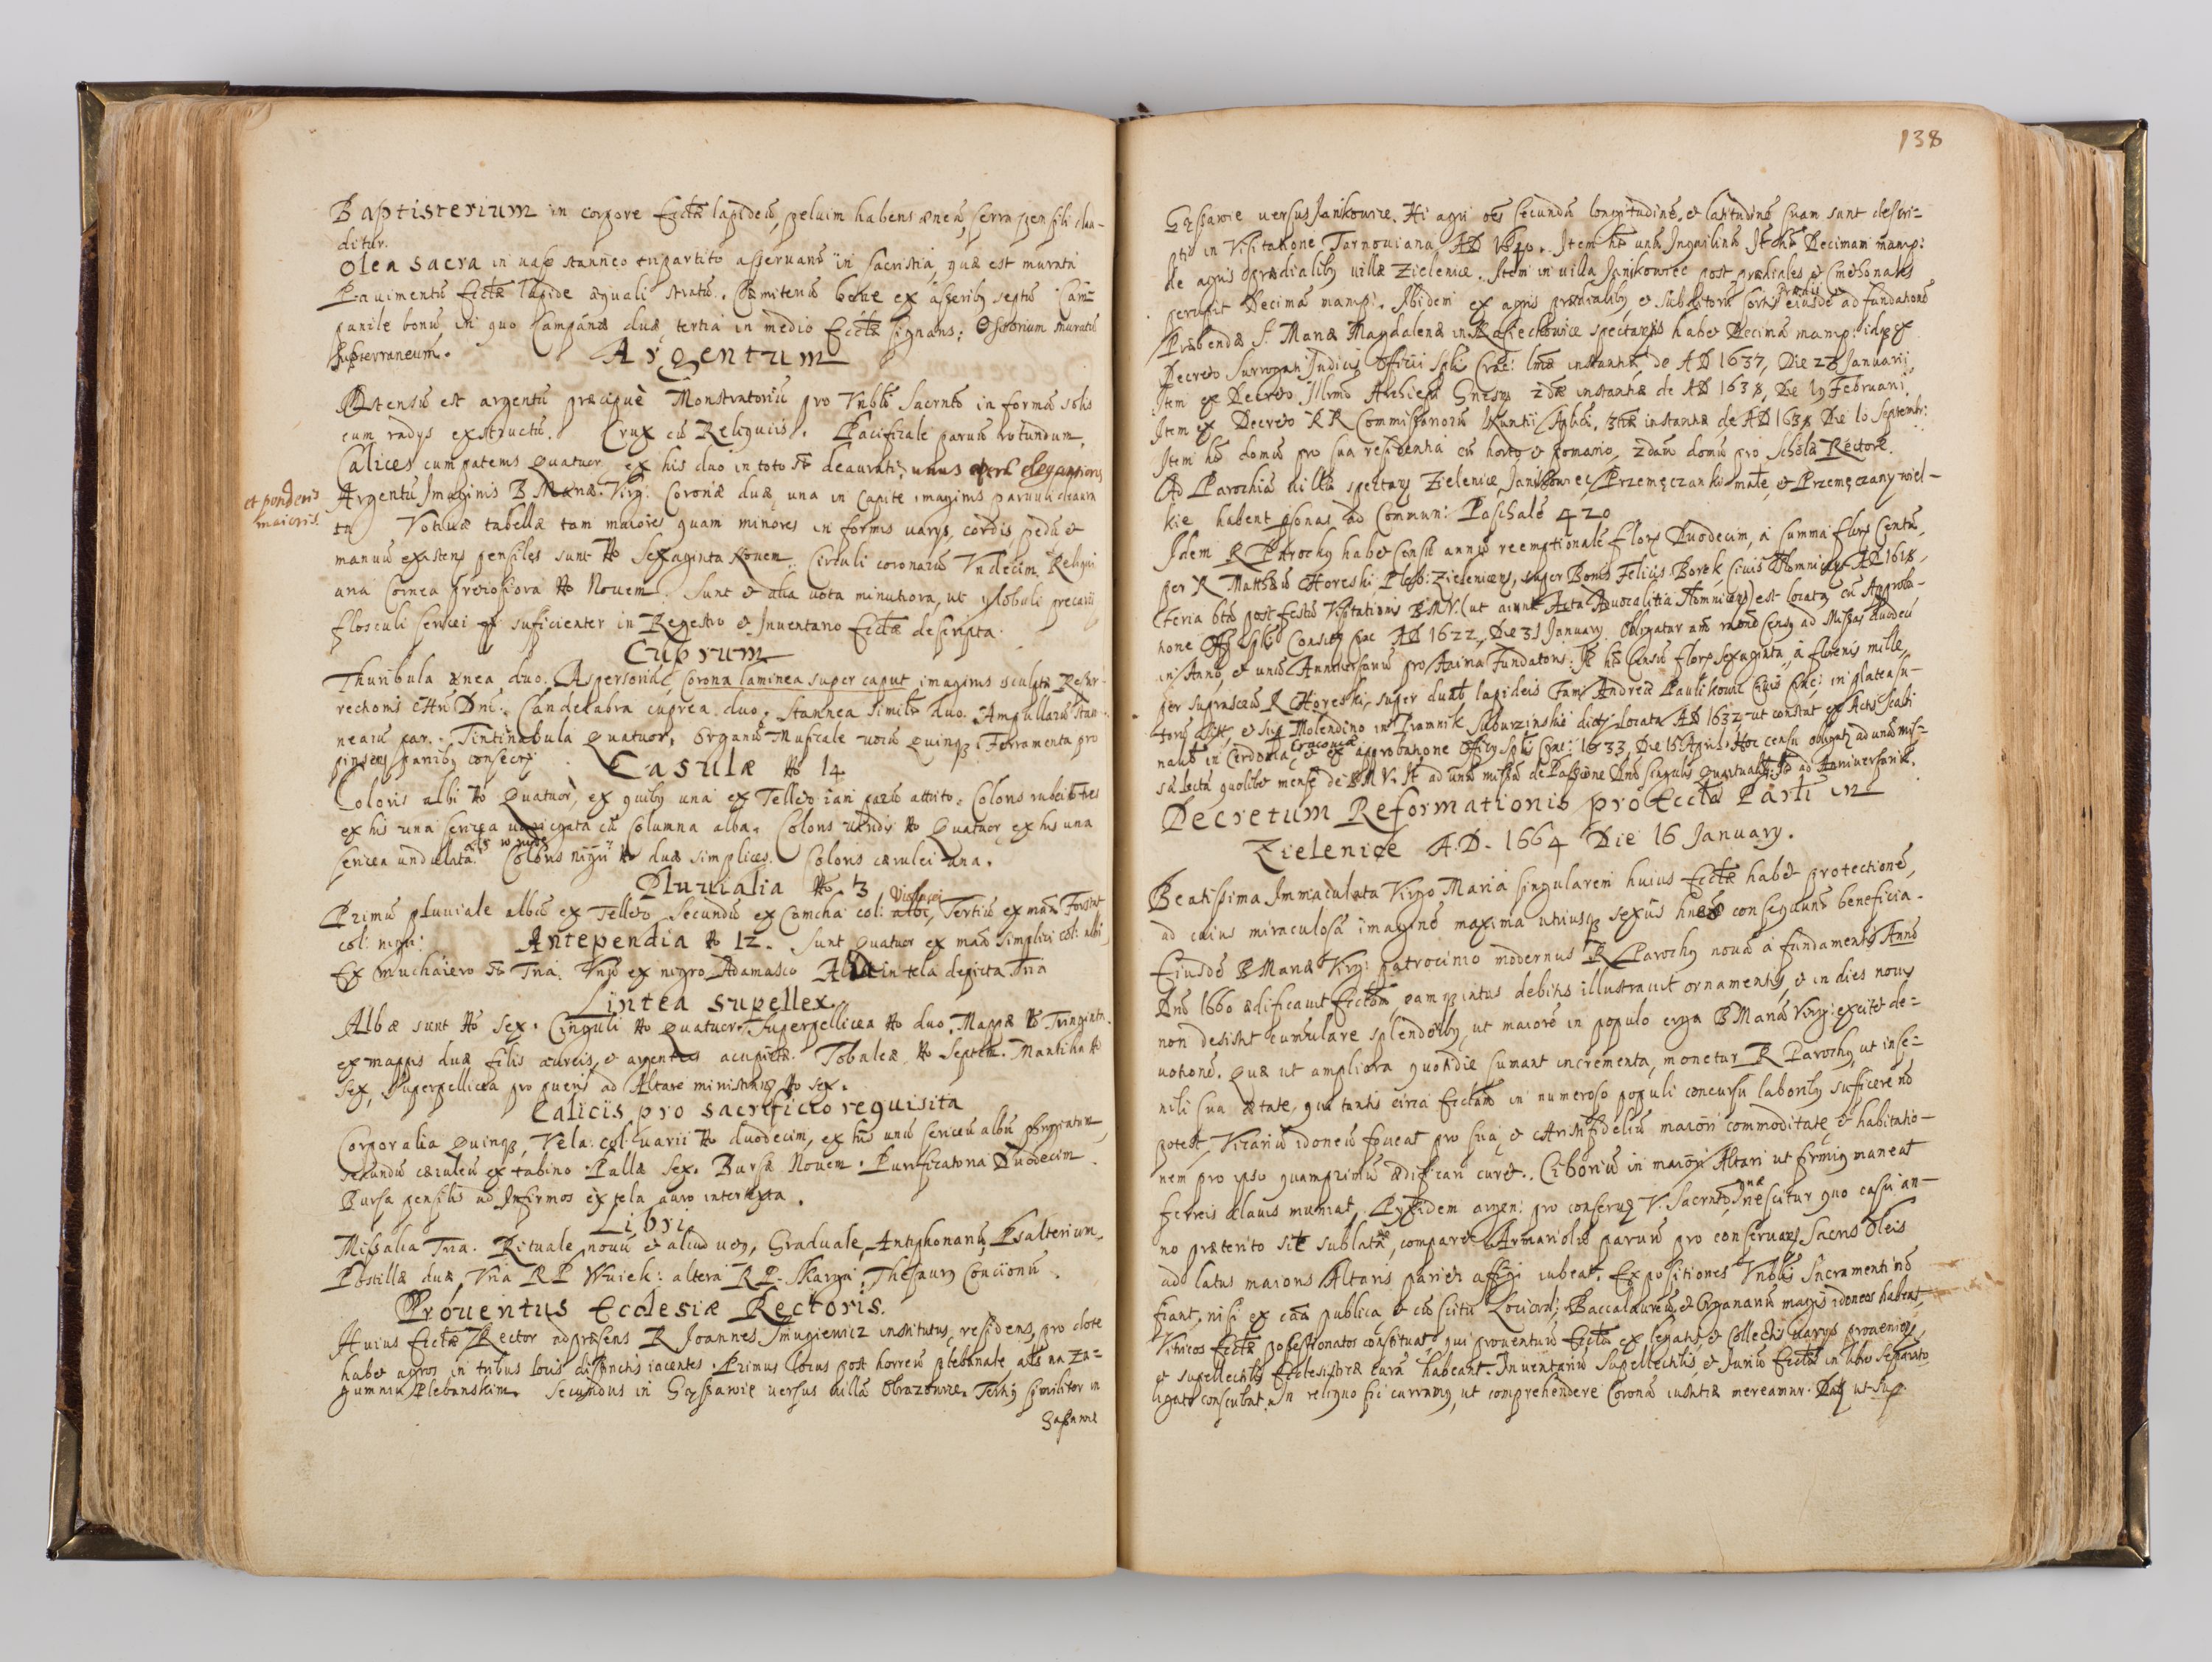 Baptisterium in corpore Eccłæ lapideũ, peluim habens æneã, serra pensili clau-
ditur.
Olea sacra in uase stanneo tripartito asseruant̃ in sacristia, quæ est murata
Pauimentũ Eccłæ lapide æquali stratũ. Cæmiteriũ bene ex asserib9 septũ. Cam=
panile bonũ, in quo Campanæ duæ, tertia in medio Eccłæ signans: Ossorium muratũ
subterraneum.
Argentum
Ostensũ est argentũ præcipuè Monstratoriũ pro Vnbłi Sacrnto in formã solis
cum radys exstructũ. Crux cũ Reliquiis. Pacificale paruũ rotundum,
Calices cum patenis Quatuor, ex his duo in toto st̃ deaurati: unus operis elegantioris
et ponderis
maioris.
Argentũ Imaginis B Mariæ Virg: Coronæ duæ, una in Capite imaginis paruuli deaura
ta Votiuæ tabellæ tam maiores quam minores in formis uarys, cordis, pedũ et
manuũ existens pensiles sunt No Sexaginta Nouem. Circuli coronarũ Vndecim, Reliqui
aria Cornea preciosiora No Nouem. Sunt et alia uota minutiora, ut globuli precarij
flosculi sericei et suficienter in Regestro et Inuentario Eccłæ descripta.
Cuprum
Thuribula ænea duo. Aspersoriũ, Corona laminea super caput imaginis sculptæ Resur-
rectionis Chri Dni. Candelabra cuprea duo. Stannea similr duo. Ampullarũ stan-
nearũ par. Tintinabula Quatuor, Organũ Musicale uocũ Quinq3. Ferramenta pro
pinsen: panib9 consecr:
Casulæ No 14
Coloris albi No Quatuor, ex quib9 una ex Telleto iam parũ attrito. Coloris rubei No tres
ex his una sericea uariegata cũ Columna alba. Coloris uiridis No Quatuor ex his una
sericea undulata. Coloris nigri No duæ simplices. Coloris cærulei una.
Pluuialia No 3
Violacei
Primũ pluuiale albũ ex Telleto Secundũ ex Camcha col: albi, Tertiũ ex mãa Forstat
col: nigri: Antependia No 12. Sunt Quatuor ex mãa simplici col: albi
Ex muchaiero st̃ Tria. Vnũ ex nigro Adamasco Alia in tela depicta Tria
Lintea supellex.
Albæ sunt No Sex. Cinguli No Quatuor. Superpellicea No duo, Mappæ No Triginta
ex mappis duæ filis aureis, et argenteis acupictæ. Tobaleæ No Septem. Mantilia No
Sex, Superpellicea pro pueris ad Altare ministrñ No Sex.
Calicis pro sacrificio requisita
Corporalia Quinq3, Vela col: uarii No duodecim, ex his unũ sericeũ albũ phrygiatum,
secundũ cæruleũ ex tabino. Pallæ Sex. Bursæ Nouem. Purificatoria Duodecim.
Bursa pensilis ad Infirmos ex tela auro intertexta.
Libri
Missalia Tria. Rituale nouũ et aliud uet9, Graduale, Antiphonariũ, Psalterium,
Postillæ duæ, Vna R P Wuiek: altera R P. Skargi, Thesaur9 Concionũ.
Prouentus Ecclesiæ Rectoris.
Huius Eccłæ Rector ad præsens R Joannes Smugiewicz institutus, residens, pro dote
habet agros in tribus locis distinctis iacentes. Primus locus post horreũ plebanale als na Za=
gumniu Plebanskim. Secundus in Gęssawie uersus uillã Obrazowice. Terti9 similiter in
Gęssawie
138
Gęssawie uersus Janikowice. Hi agri oẽs secundũ longitudinẽ, et latitudinẽ suam sunt descri=
pti in Visitatione Tarnouiana AD Item ht unũ Inquilinũ It ht Decimam manip:
de agris prædialib9 uillæ Zielenice. Item in uilla Janikowiec post prædiales et Cmethonales
percipit Decimã manip: Ibidem ex agris prædialib9 et subditorũ
Præbendæ S. Mariæ Magdalenæ in Raciechowice habet Decimã manip: idq3 ex
Decreto Surrogati Judicis Officii Spłis Crac: Imæ instantiæ de AD 1637, Die 23 Januarij
Item ex Decreto Illrmi Archiepi Gnesn 2dæ instantiæ de AD 1638, Die 19 Februari
Item ex Decreto RR Commissariorũ Nuntii Aplici, 3tiæ instantiæ de AD 1638 Die 10 Septembr:
Item ht domũ pro sua residentia cũ horto et pomario, 2dam domũ pro Scholæ Rectore.
Ad Parochiã uillæ spectan Zielenice, Janikowiec, Przemęczanki małe, et Przemęczany wiel-
kie habent psonas ad Commun: Paschalẽ 420
Idem R Paroch9 habet Censũ annuũ reemptionalẽ flors Duodecim, à summa flors Centũ,
per R Matthæũ Choreski Pleb: Zielenicens, super Bonis Felicis Borek Ciuis AD 1618,
feria 6ta post festũ Visitationis B.M.V. (ut aiunt Acta Aduocalitia) est locatũ cũ Approba-
tione Off Spłis AD 1622, Die 31 January. Obligatur ad Missas duodeci
in Anno, et unũ Anniuersariũ pro Aãia Fundatoris. It ht Censũ flors Sexaginta, à florenis mille,
per suprascriptũ R Choreski, super domo lapidea Fam: Andreæ Paulikowic Ciuis Crac: in platea su-
torũ et sup Molendino in Pramnik dicti Locata AD 1632, ut constat ex Actis Scabi
nalib9 in Cerdonia, et ex approbatione Officij Spłis Crac: 1633, Die 15 April. Hoc censu obligat9 ad unã mis=
Cracouiæ
sã lectã quolibet mense de B M V. It ad unã missã de Passione Dni singulis quartualib9. It ad Anniuersariũ.
Decretum Reformationis pro Eccła Parłi in
Zielenice A.D. 1664 Die 16 January.
Beatissima Immaculata Virgo Maria singularem huius Eccłæ habet protectionẽ,
ad cuius miraculosã imaginẽ maxima utriusq3 sexus hoies consequunt̃ beneficia.
Eiusdẽ B Mariæ Virg: patrocinio modernus R Paroch9 nouã à fundamentis Anno
Dni 1660 ædificauit Eccłam, eamq3 intus debitis illustrauit ornamentis, et in dies nouis
non desistit cumulare splendorib9, ut maiorẽ in populo erga B Mariã Virg: excitet de=
uotionẽ. Quæ ut ampliora quotidie sumant incrementa, monetur R Paroch9, ut inse=
nili sua ætate, qui tantis circa Eccłam in numeroso populi concursu laborib9 sufficere nõ
potest, Vicariũ idoneũ foueat pro sua et Christifideliũ maiori commoditate, et habitatio-
nem pro ipso quamprimũ ædificari curet. Ciboriũ in maiori Altari ut firmi9 maneat
ferreis clauis muniat. Pyxidem argen: pro conseru: V. Sacrnto, quæ nescitur quo casu an-
no præterito sit sublata, comparet Armariolũ paruũ pro conseruan: Sacris Oleis
ad latus maioris Altaris parieti affigi iubeat. Expositiones Vnblis Sacramenti nõ
fiant, nisi ex cãa publica, et cũ scitu Loci ord: Baccalaureũ, et Organariũ magis idoneos habeat,
Vitricos Eccłæ possessionatos constituat, qui prouentuũ Eccłæ ex legatis, et Collectis uarys prouenien:
et supellectilis Ecclesiasticæ curã habeant. Inuentariũ Supellectilis, et Juriũ Eccłæ in libro separato
ligato conscribat. In reliquo sic curram9, ut comprehendere Coronã iustitiæ mereamur. Dat9 ut Sup.